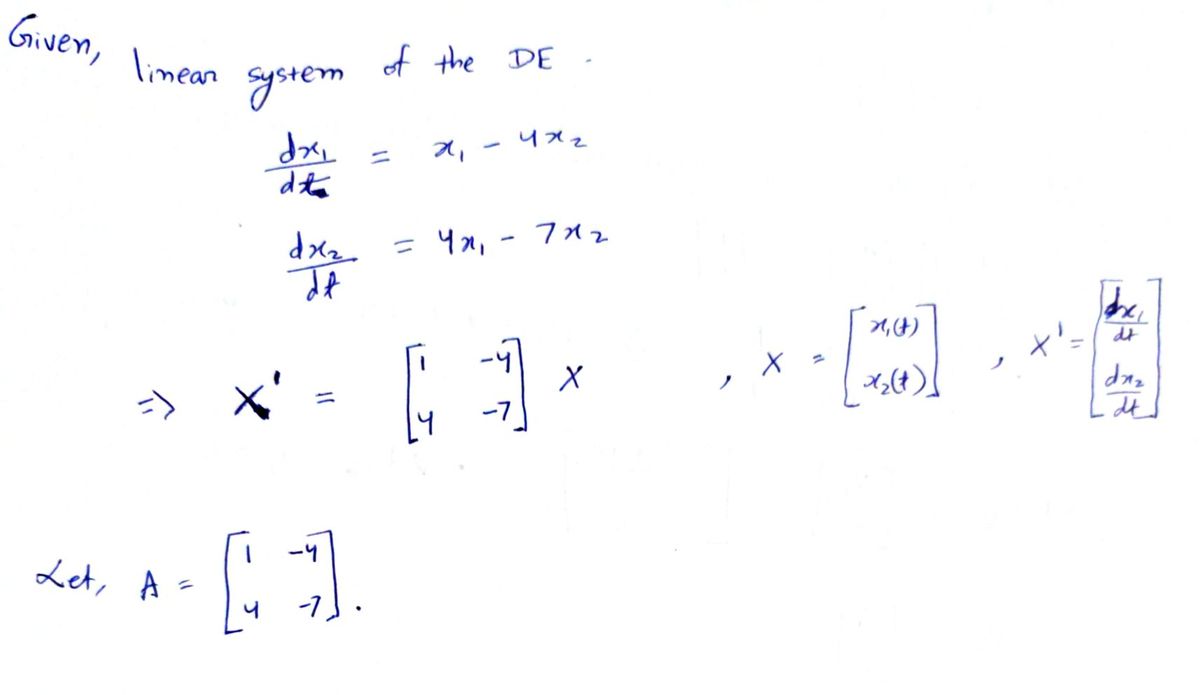 Given, linear system of the DE.
dx₁/dt = x₁ - 4x₂
dx₂/dt = 4x₁ - 7x₂
=> X' = [1 -4; 4 -7] X , X = [x₁(t); x₂(t)] , X' = [dx₁/dt; dx₂/dt]
Let, A = [1 -4; 4 -7].